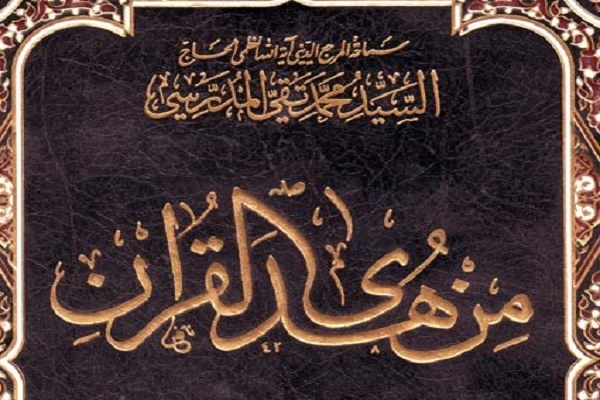 سماحة المرجع الديني آية الله العظمى الحاج
السَّيِّدُ مُحَمَّد تَقِيّ المُدَرِّسِي
مِنْ هُدَى القُرْآنِ